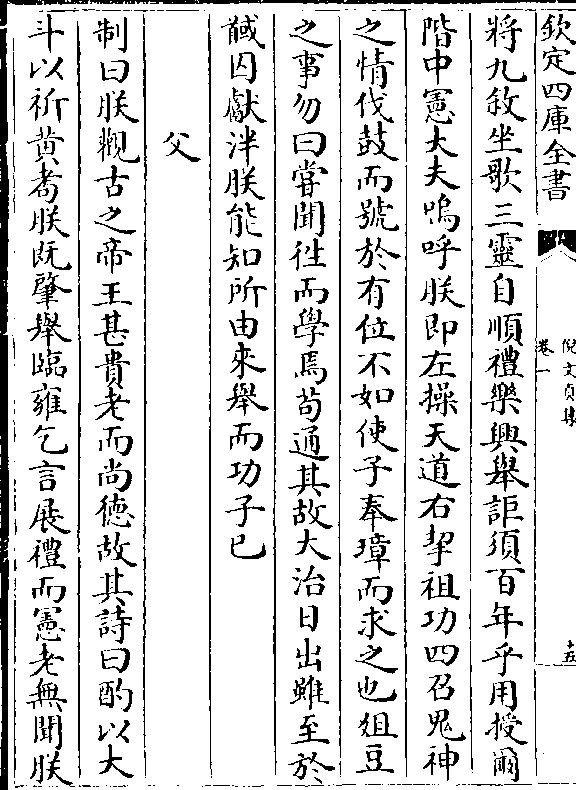 欽定四庫全書
倪文貞集
卷一
十五
將九敘坐歌三靈自順禮樂興舉詎須百年乎用授爾
階中憲大夫嗚呼朕即左操天道右挈祖功四召鬼神
之情伐鼓而號於有位不如使子奉璋而求之也俎豆
之事勿曰嘗聞徃而學焉苟通其故大治日出雖至於
馘囚獻泮朕能知所由來舉而功子已
父
制曰朕觀古之帝王甚貴老而尚德故其詩曰酌以大
斗以祈黄耈朕既肇舉臨雍乞言展禮而憲老無聞朕